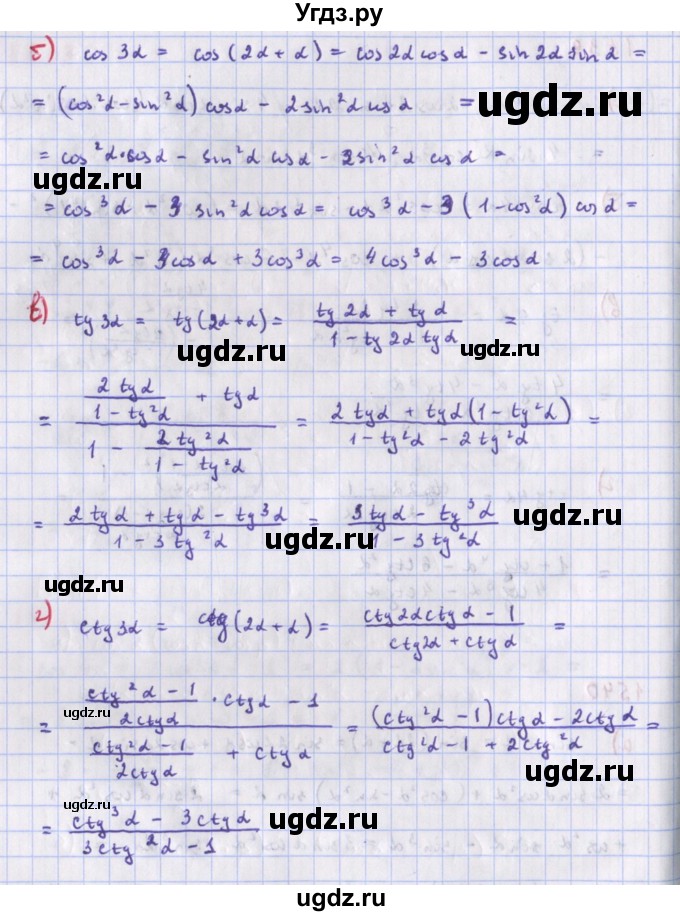 Угдз.ру
б) cos 3α = cos (2α + α) = cos 2α cos α - sin 2α sin α =
= (cos²α - sin²α) cos α - 2 sin²α cos α =
ugdz.ru
= cos²α · cos α - sin²α cos α - 2 sin²α cos α =
ugdz.ru
= cos³α - 3 sin²α cos α = cos³α - 3 (1 - cos²α) cos α =
= cos³α - 3 cos α + 3 cos³α = 4 cos³α - 3 cos α
в) tg 3α = tg (2α + α) = (tg 2α + tg α) / (1 - tg 2α tg α) =
ugdz.ru ugdz.ru
= (2 tg α / (1 - tg²α) + tg α) / (1 - 2 tg²α / (1 - tg²α)) = (2 tg α + tg α (1 - tg²α)) / (1 - tg²α - 2 tg²α) =
= (2 tg α + tg α - tg 3α) / (1 - 3 tg²α) = (3 tg α - tg³α) / (1 - 3 tg²α)
ugdz.ru ugdz.ru
ugdz.ru
г) ctg 3α = ctg (2α + α) = (ctg 2α ctg α - 1) / (ctg 2α + ctg α) =
ugdz.ru
= ((ctg²α - 1) / (2 ctg α) · ctg α - 1) / ((ctg²α - 1) / (2 ctg α) + ctg α) = ((ctg²α - 1) ctg α - 2 ctg α) / (ctg²α - 1 + 2 ctg²α) =
ugdz.ru
ugdz.ru
= (ctg³α - 3 ctg α) / (3 ctg²α - 1)
ugdz.ru
ugdz.ru
ugdz.ru